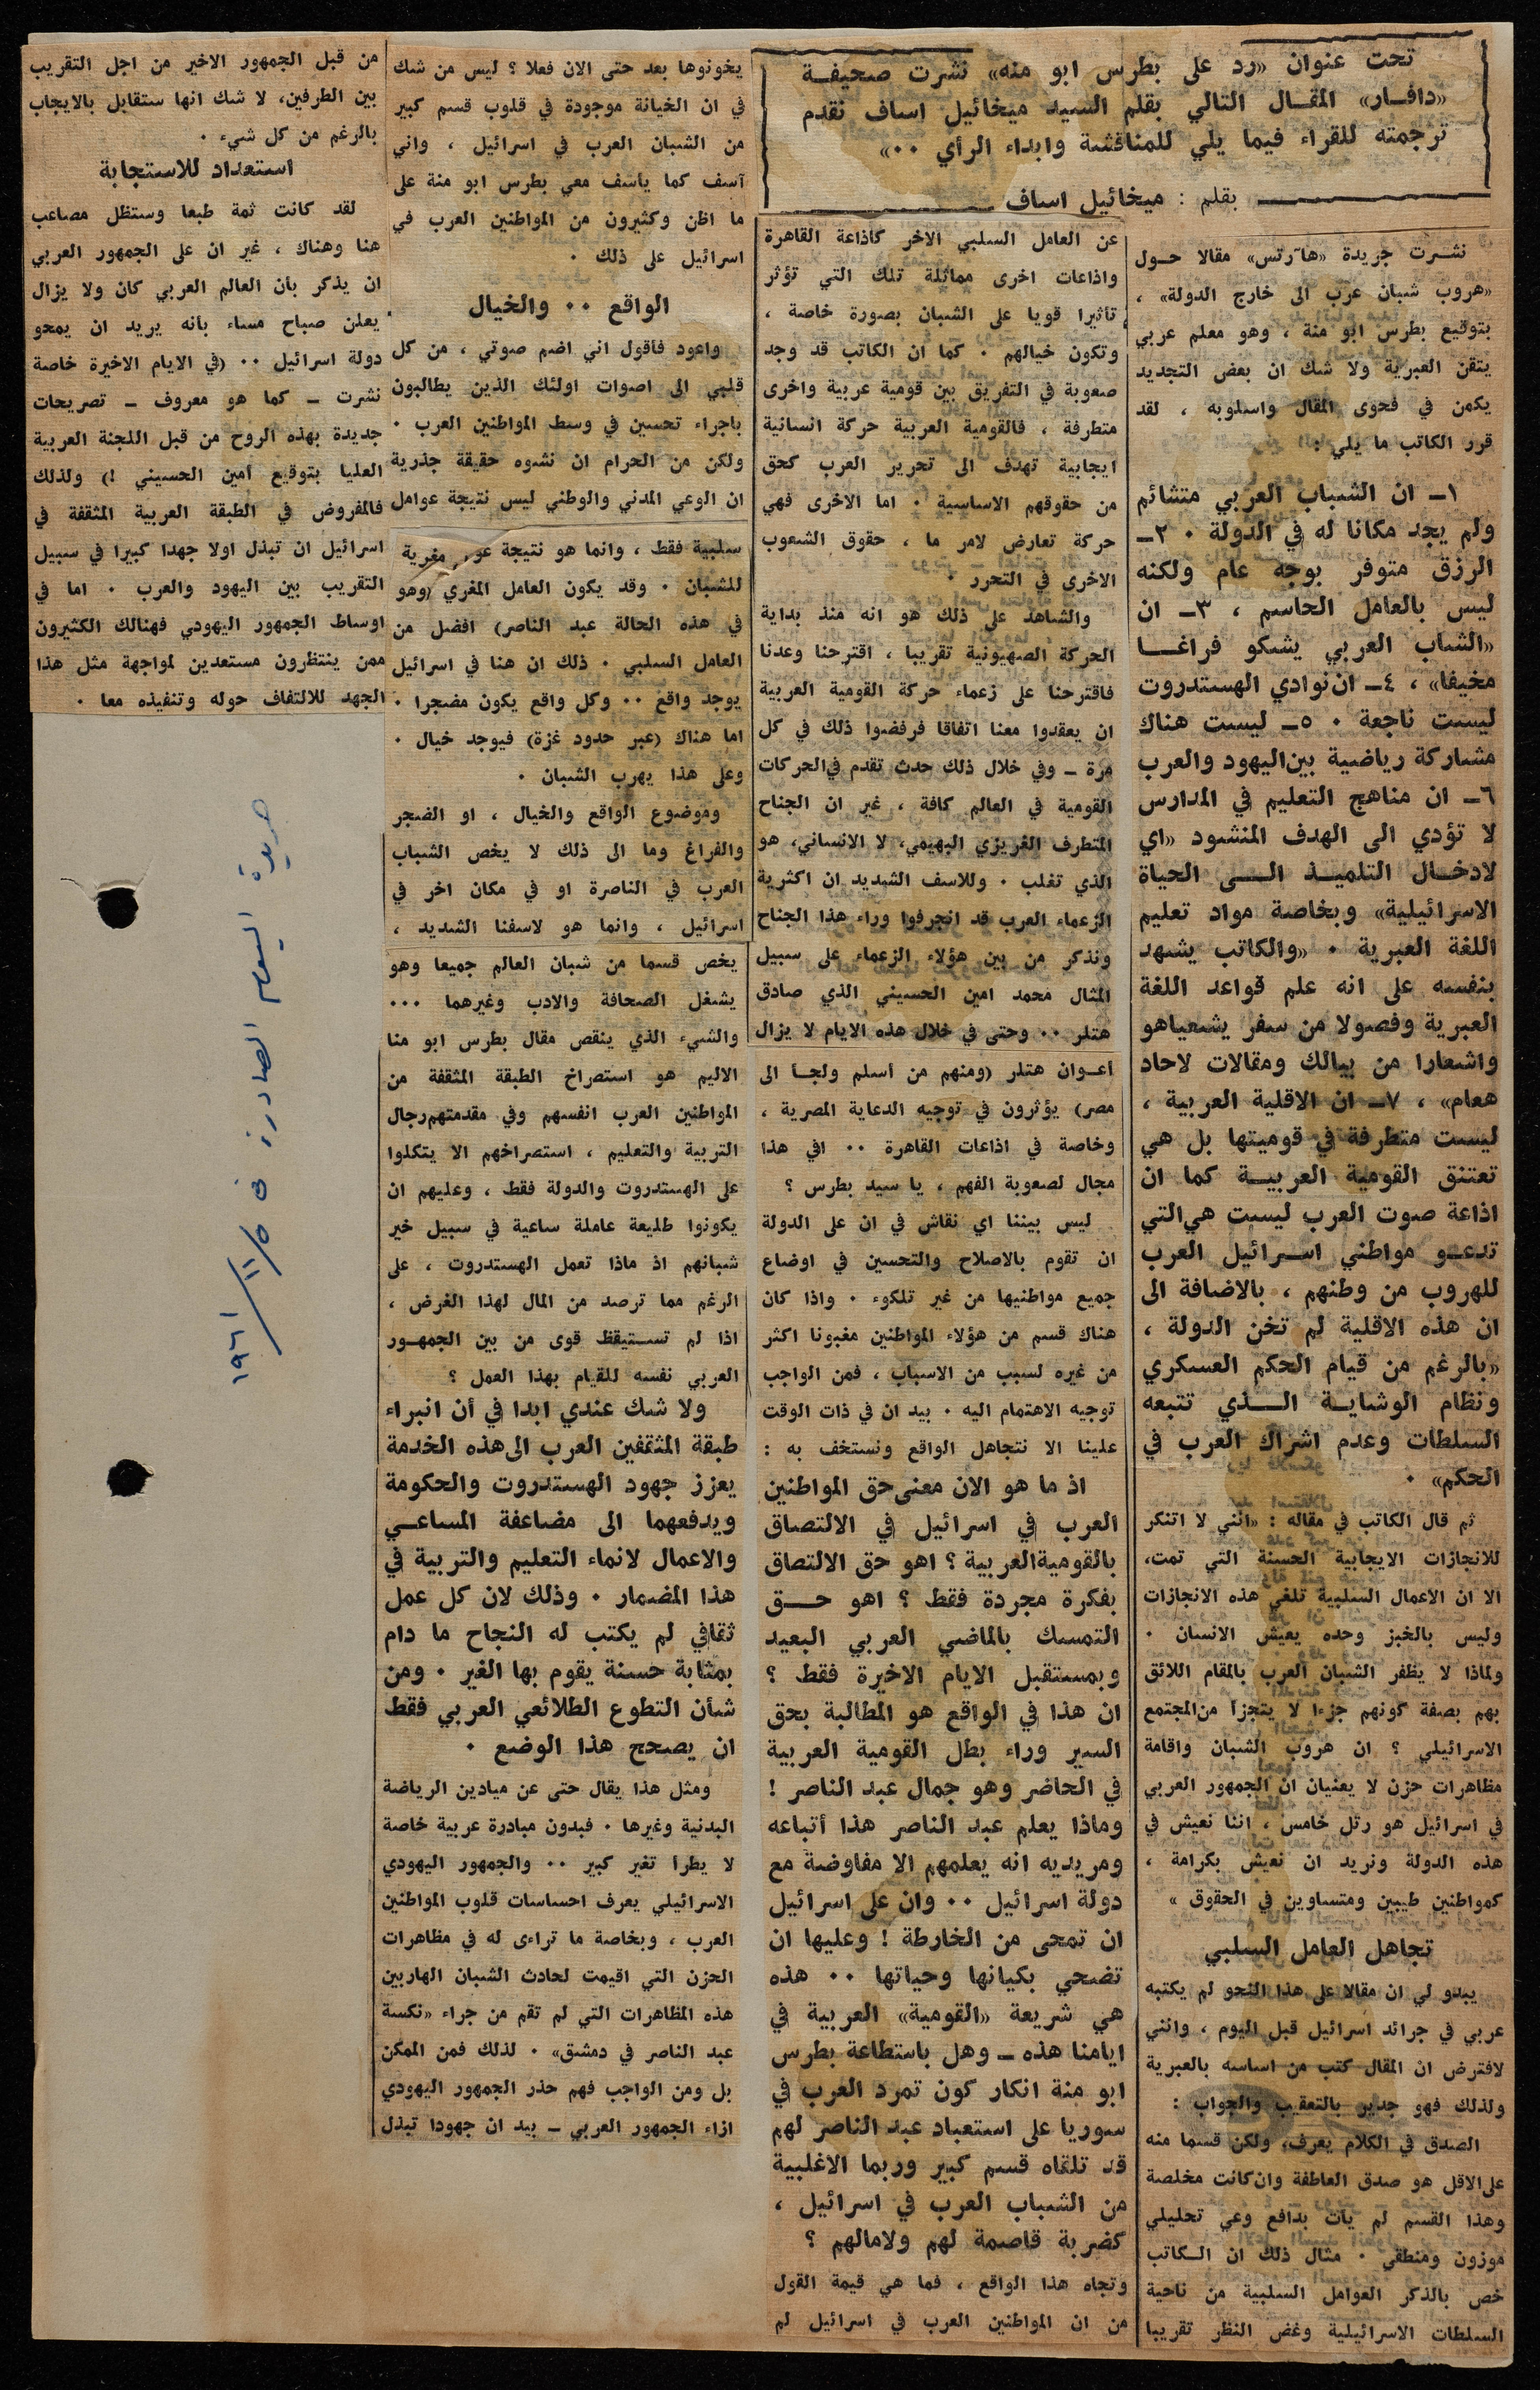 تحت عنوان «رد على بطرس ابو منه» نشرت صحيفة
«دافار» المقال التالي بقلم السيد ميخائيل اساف نقدم
ترجمته للقراء فيما يلي للمناقشة وابداء الرأي ٠٠»
بقلم : ميخائيل اساف
نشرت جريدة «هآرتس» مقالا حول
«هروب شبان عرب الى خارج الدولة» ،
بتوقيع بطرس ابو منة ، وهو معلم عربي
يتقن العبرية ولا شك ان بعض التجديد
يكمن في فحوى المقال واسلوبه ، لقد
قرر الكاتب ما يلي :
١ـ ان الشباب العربي متشائم
ولم يجد مكانا له في الدولة ٠ ٢ـ
الرزق متوفر بوجه عام ولكنه
ليس بالعامل الحاسم ، ٣ـ ان
«الشباب العربي يشكو فراغا
مخيفا» ، ٤ـ ان نوادي الهستدروت
ليست ناجعة ٠ ٥ـ ليست هناك
مشاركة رياضية بين اليهود والعرب
٦ـ ان مناهج التعليم في المدارس
لا تؤدي الى الهدف المنشود «اي
لادخال التلميذ الى الحياة
الاسرائيلية» وبخاصة مواد تعليم
اللغة العبرية ٠ «والكاتب يشهد
بنفسه على انه علم قواعد اللغة
العبرية وفصولا من سفر يشعياهو
واشعارا من بيالك ومقالات لاحاد
هعام» ، ٧ـ ان الاقلية العربية ،
ليست متطرفة في قوميتها بل هي
تعتنق القومية العربية كما ان
اذاعة صوت العرب ليست هي التي
تدعو مواطني اسرائيل العرب
للهروب من وطنهم ، بالاضافة الى
ان هذه الاقلية لم تخن الدولة ،
«بالرغم من قيام الحكم العسكري
ونظام الوشاية الذي تتبعه
السلطات وعدم اشراك العرب في
الحكم» ٠
ثم قال الكاتب في مقاله : «انني لا اتنكر
للانجازات الايجابية الحسنة التي تمت،
الا ان الاعمال السلبية تلغي هذه الانجازات
وليس بالخبز وحده يعيش الانسان ٠
ولماذا لا يظفر الشبان العرب بالمقام اللائق
بهم بصفة كونهم جزءا لا يتجزأ من المجتمع
الاسرائيلي ؟ ان هروب الشبان واقامة
مظاهرات حزن لا يعنيان ان الجمهور العربي
في اسرائيل هو رتل خامس ، اننا نعيش في
هذه الدولة ونريد ان نعيش بكرامة ،
كمواطنين طيبين ومتساوين في الحقوق »
تجاهل العامل السلبي
يبدو لي ان مقالا على هذا النحو لم يكتبه
عربي في جرائد اسرائيل قبل اليوم ، وانني
لافترض ان المقال كتب من اساسه بالعبرية
ولذلك فهو جدير بالتعقيب والجواب :
الصدق في الكلام يعرف، ولكن قسما منه
على الاقل هو صدق العاطفة وان كانت مخلصة
وهذا القسم لم يأت بدافع وعي تحليلي
موزون ومنطقي ٠ مثال ذلك ان الكاتب
خص بالذكر العوامل السلبية من ناحية
السلطات الاسرائيلية وغض النظر تقريبا
عن العامل السلبي الاخر كاذاعة القاهرة
واذاعات اخرى مماثلة تلك التي تؤثر
تأثيرا قويا على الشبان بصورة خاصة ،
وتكون خيالهم ٠ كما ان الكاتب قد وجد
صعوبة في التفريق بين قومية عربية واخرى
متطرفة ، فالقومية العربية حركة انسانية
ايجابية تهدف الى تحرير العرب كحق
من حقوقهم الاساسية ٠ اما الاخرى فهي
حركة تعارض لامر ما ، حقوق الشعوب
الاخرى في التحرر ٠
والشاهد على ذلك هو انه منذ بداية
الحركة الصهيونية تقريبا ، اقترحنا وعدنا
فاقترحنا على زعماء حركة القومية العربية
ان يعقدوا معنا اتفاقا فرفضوا ذلك في كل
مرة ـ وفي خلال ذلك حدث تقدم في الحركات
القومية في العالم كافة ، غير ان الجناح
المتطرف الغريزي البهيمي، لا الانساني، هو
الذي تغلب ٠ وللاسف الشديد ان اكثرية
الزعماء العرب قد انجرفوا وراء هذا الجناح
ونذكر من بين هؤلاء الزعماء على سبيل
المثال محمد امين الحسيني الذي صادق
هتلر ٠٠ وحتى في خلال هذه الايام لا يزال
اعوان هتلر (ومنهم من أسلم ولجأ الى
مصر) يؤثرون في توجيه الدعاية المصرية ،
وخاصة في اذاعات القاهرة ٠٠ افي هذا
مجال لصعوبة الفهم ، يا سيد بطرس ؟
ليس بيننا اي نقاش في ان على الدولة
ان تقوم بالاصلاح والتحسين في اوضاع
جميع مواطنيها من غير تلكوء ٠ واذا كان
هناك قسم من هؤلاء المواطنين مغبونا اكثر
من غيره لسبب من الاسباب ، فمن الواجب
توجيه الاهتمام اليه ٠ بيد ان في ذات الوقت
علينا الا نتجاهل الواقع ونستخف به :
اذ ما هو الان معنى حق المواطنين
العرب في اسرائيل في الالتصاق
بالقومية العربية ؟ اهو حق الالتصاق
بفكرة مجردة فقط ؟ اهو حق
التمسك بالماضي العربي البعيد
وبمستقبل الايام الاخيرة فقط ؟
ان هذا في الواقع هو المطالبة بحق
السير وراء بطل القومية العربية
في الحاضر وهو جمال عبد الناصر !
وماذا يعلم عبد الناصر هذا أتباعه
ومريديه انه يعلمهم الا مفاوضة مع
دولة اسرائيل ٠٠ وان على اسرائيل
ان تمحى من الخارطة ! وعليها ان
تضحي بكيانها وحياتها ٠٠ هذه
هي شريعة «القومية» العربية في
ايامنا هذه ـ وهل باستطاعة بطرس
ابو منة انكار كون تمرد العرب في
سوريا على استعباد عبد الناصر لهم
قد تلقاه قسم كبير وربما الاغلبية
من الشباب العرب في اسرائيل ،
كضربة قاصمة لهم ولامالهم ؟
وتجاه هذا الواقع ، فما هي قيمة القول
من ان المواطنين العرب في اسرائيل لم
يخونوها بعد حتى الان فعلا ؟ ليس من شك
في ان الخيانة موجودة في قلوب قسم كبير
من الشبان العرب في اسرائيل ، واني
آسف كما يأسف معي بطرس ابو منة على
ما اظن وكثيرون من المواطنين العرب في
اسرائيل على ذلك ٠
الواقع ٠٠ والخيال
واعود فاقول اني اضم صوتي ، من كل
قلبي الى اصوات اولئك الذين يطالبون
باجراء تحسين في وسط المواطنين العرب ٠
ولكن من الحرام ان نشوه حقيقة جذرية
ان الوعي المدني والوطني ليس نتيجة عوامل
سلبية فقط ، وانما هو نتيجة مغرية
للشبان ٠ وقد يكون العامل المغري (وهو
في هذه الحالة عبد الناصر) افضل من
العامل السلبي ٠ ذلك ان هنا في اسرائيل
يوجد واقع ٠٠ وكل واقع يكون مضجرا ٠
اما هناك (عبر حدود غزة) فيوجد خيال ٠
وعلى هذا يهرب الشبان ٠
وموضوع الواقع والخيال ، او الضجر
والفراغ وما الى ذلك لا يخص الشباب
العرب في الناصرة او في مكان اخر في
اسرائيل ، وانما هو لاسفنا الشديد ،
يخص قسما من شبان العالم جميعا وهو
يشغل الصحافة والادب وغيرهما ٠٠٠
والشيء الذي ينقص مقال بطرس ابو منا
الاليم هو استصراخ الطبقة المثقفة من
المواطنين العرب انفسهم وفي مقدمتهم رجال
التربية والتعليم ، استصراخهم الا يتكلوا
على الهستدروت والدولة فقط ، وعليهم ان
يكونوا طليعة عاملة ساعية في سبيل خير
شبانهم اذ ماذا تعمل الهستدروت ، على
الرغم مما ترصد من المال لهذا الغرض ،
اذا لم تستيقظ قوى من بين الجمهور
العربي نفسه للقيام بهذا العمل ؟
ولا شك عندي ابدا في أن انبراء
طبقة المثقفين العرب الى هذه الخدمة
يعزز جهود الهستدروت والحكومة
ويدفعهما الى مضاعفة المساعي
والاعمال لانماء التعليم والتربية في
هذا المضمار ٠ وذلك لان كل عمل
ثقافي لم يكتب له النجاح ما دام
بمثابة حسنة يقوم بها الغير ٠ ومن
شأن التطوع الطلائعي العربي فقط
ان يصحح هذا الوضع ٠
ومثل هذا يقال حتى عن ميادين الرياضة
البدنية وغيرها ٠ فبدون مبادرة عربية خاصة
لا يطرأ تغير كبير ٠٠ والجمهور اليهودي
الاسرائيلي يعرف احساسات قلوب المواطنين
العرب ، وبخاصة ما تراءى له في مظاهرات
الحزن التي اقيمت لحادث الشبان الهاربين
هذه المظاهرات التي لم تقم من جراء «نكسة
عبد الناصر في دمشق» ٠ لذلك فمن الممكن
بل ومن الواجب فهم حذر الجمهور اليهودي
ازاء الجمهور العربي ـ بيد ان جهودا تبذل
من قبل الجمهور الاخير من اجل التقريب
بين الطرفين، لا شك انها ستقابل بالايجاب
بالرغم من كل شيء ٠
استعداد للاستجابة
لقد كانت ثمة طبعا وستظل مصاعب
هنا وهناك ، غير ان على الجمهور العربي
ان يذكر بأن العالم العربي كان ولا يزال
يعلن صباح مساء بأنه يريد ان يمحو
دولة اسرائيل ٠٠ (في الايام الاخيرة خاصة
نشرت ـ كما هو معروف ـ تصريحات
جديدة بهذه الروح من قبل اللجنة العربية
العليا بتوقيع امين الحسيني !) ولذلك
فالمفروض في الطبقة العربية المثقفة في
اسرائيل ان تبذل اولا جهدا كبيرا في سبيل
التقريب بين اليهود والعرب ٠ اما في
اوساط الجمهور اليهودي فهنالك الكثيرون
ممن ينتظرون مستعدين لمواجهة مثل هذا
الجهد للالتفاف حوله وتنفيذه معا ٠
جريدة اليوم الصادرة في ٥/١١/١٩٦١